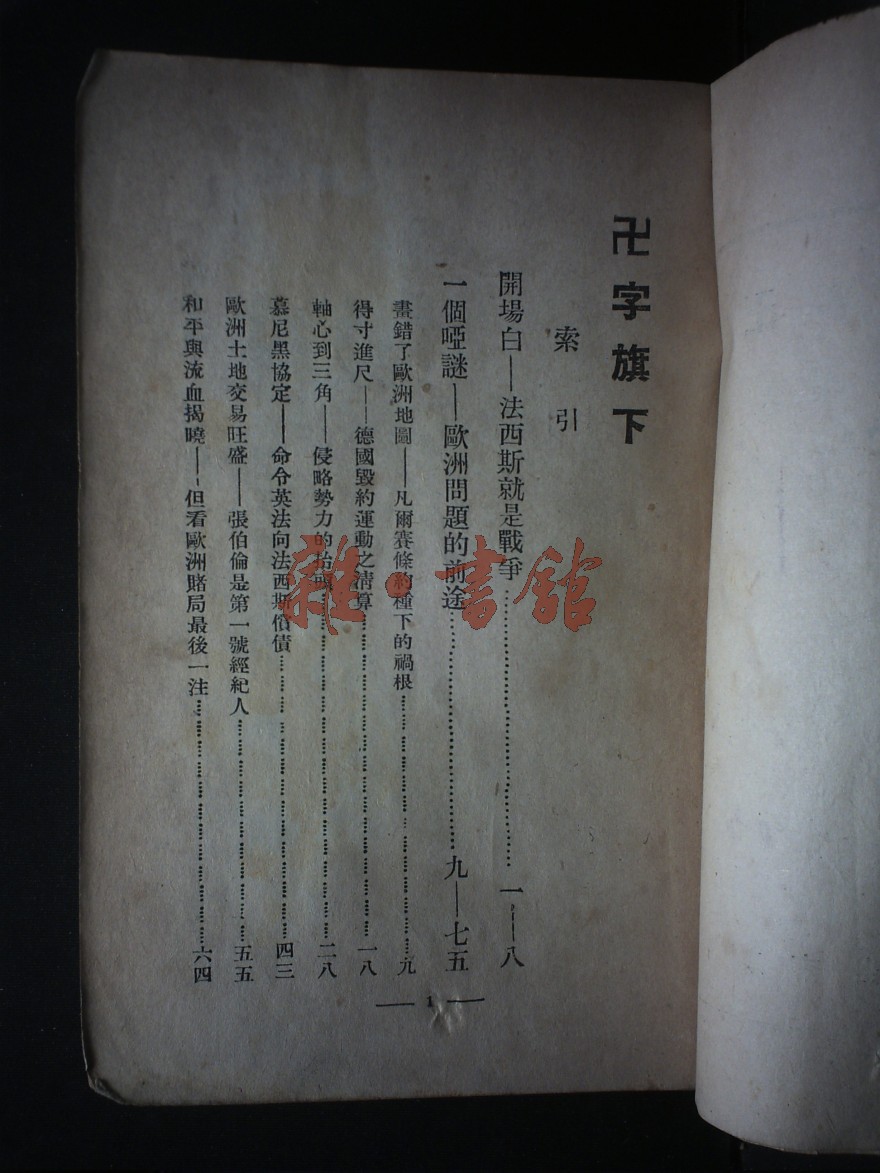 卍字旗下
索引
開場白——法西斯就是戰爭……一——八
一個啞謎——歐洲問題的前途……九——七五
畫錯了歐洲地圖——凡爾賽條約種下的禍根……九
得寸進尺——德國毀約運動之清算……一八
軸心到三角——侵略勢力的抬頭……二八
慕尼黑協定——命令英法向法西斯償債……四三
歐洲土地交易旺盛——張伯倫是第一號經紀人……五五
和平與流血揭曉——但看歐洲賭局最後一注……六四
— 1 —
雜·書館